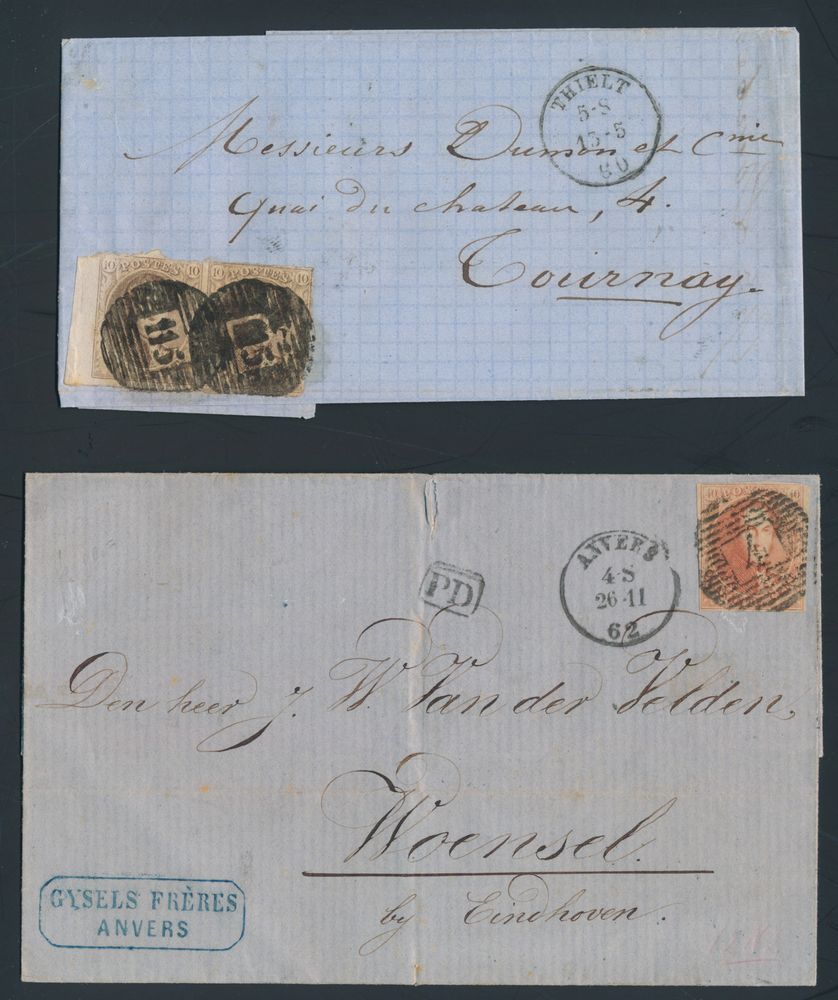 THIELT
5-S
15-5
60
Messieurs Dumon et Cmie
Quai du chateau, 4.
Tournay.
10 POSTES 10
10 POSTES 10
PD
ANVERS
4-S
26-11
62
10 10
Den heer J. W. Van der Velden,
Woensel.
by Eindhoven.
GYSELS FRÈRES
ANVERS